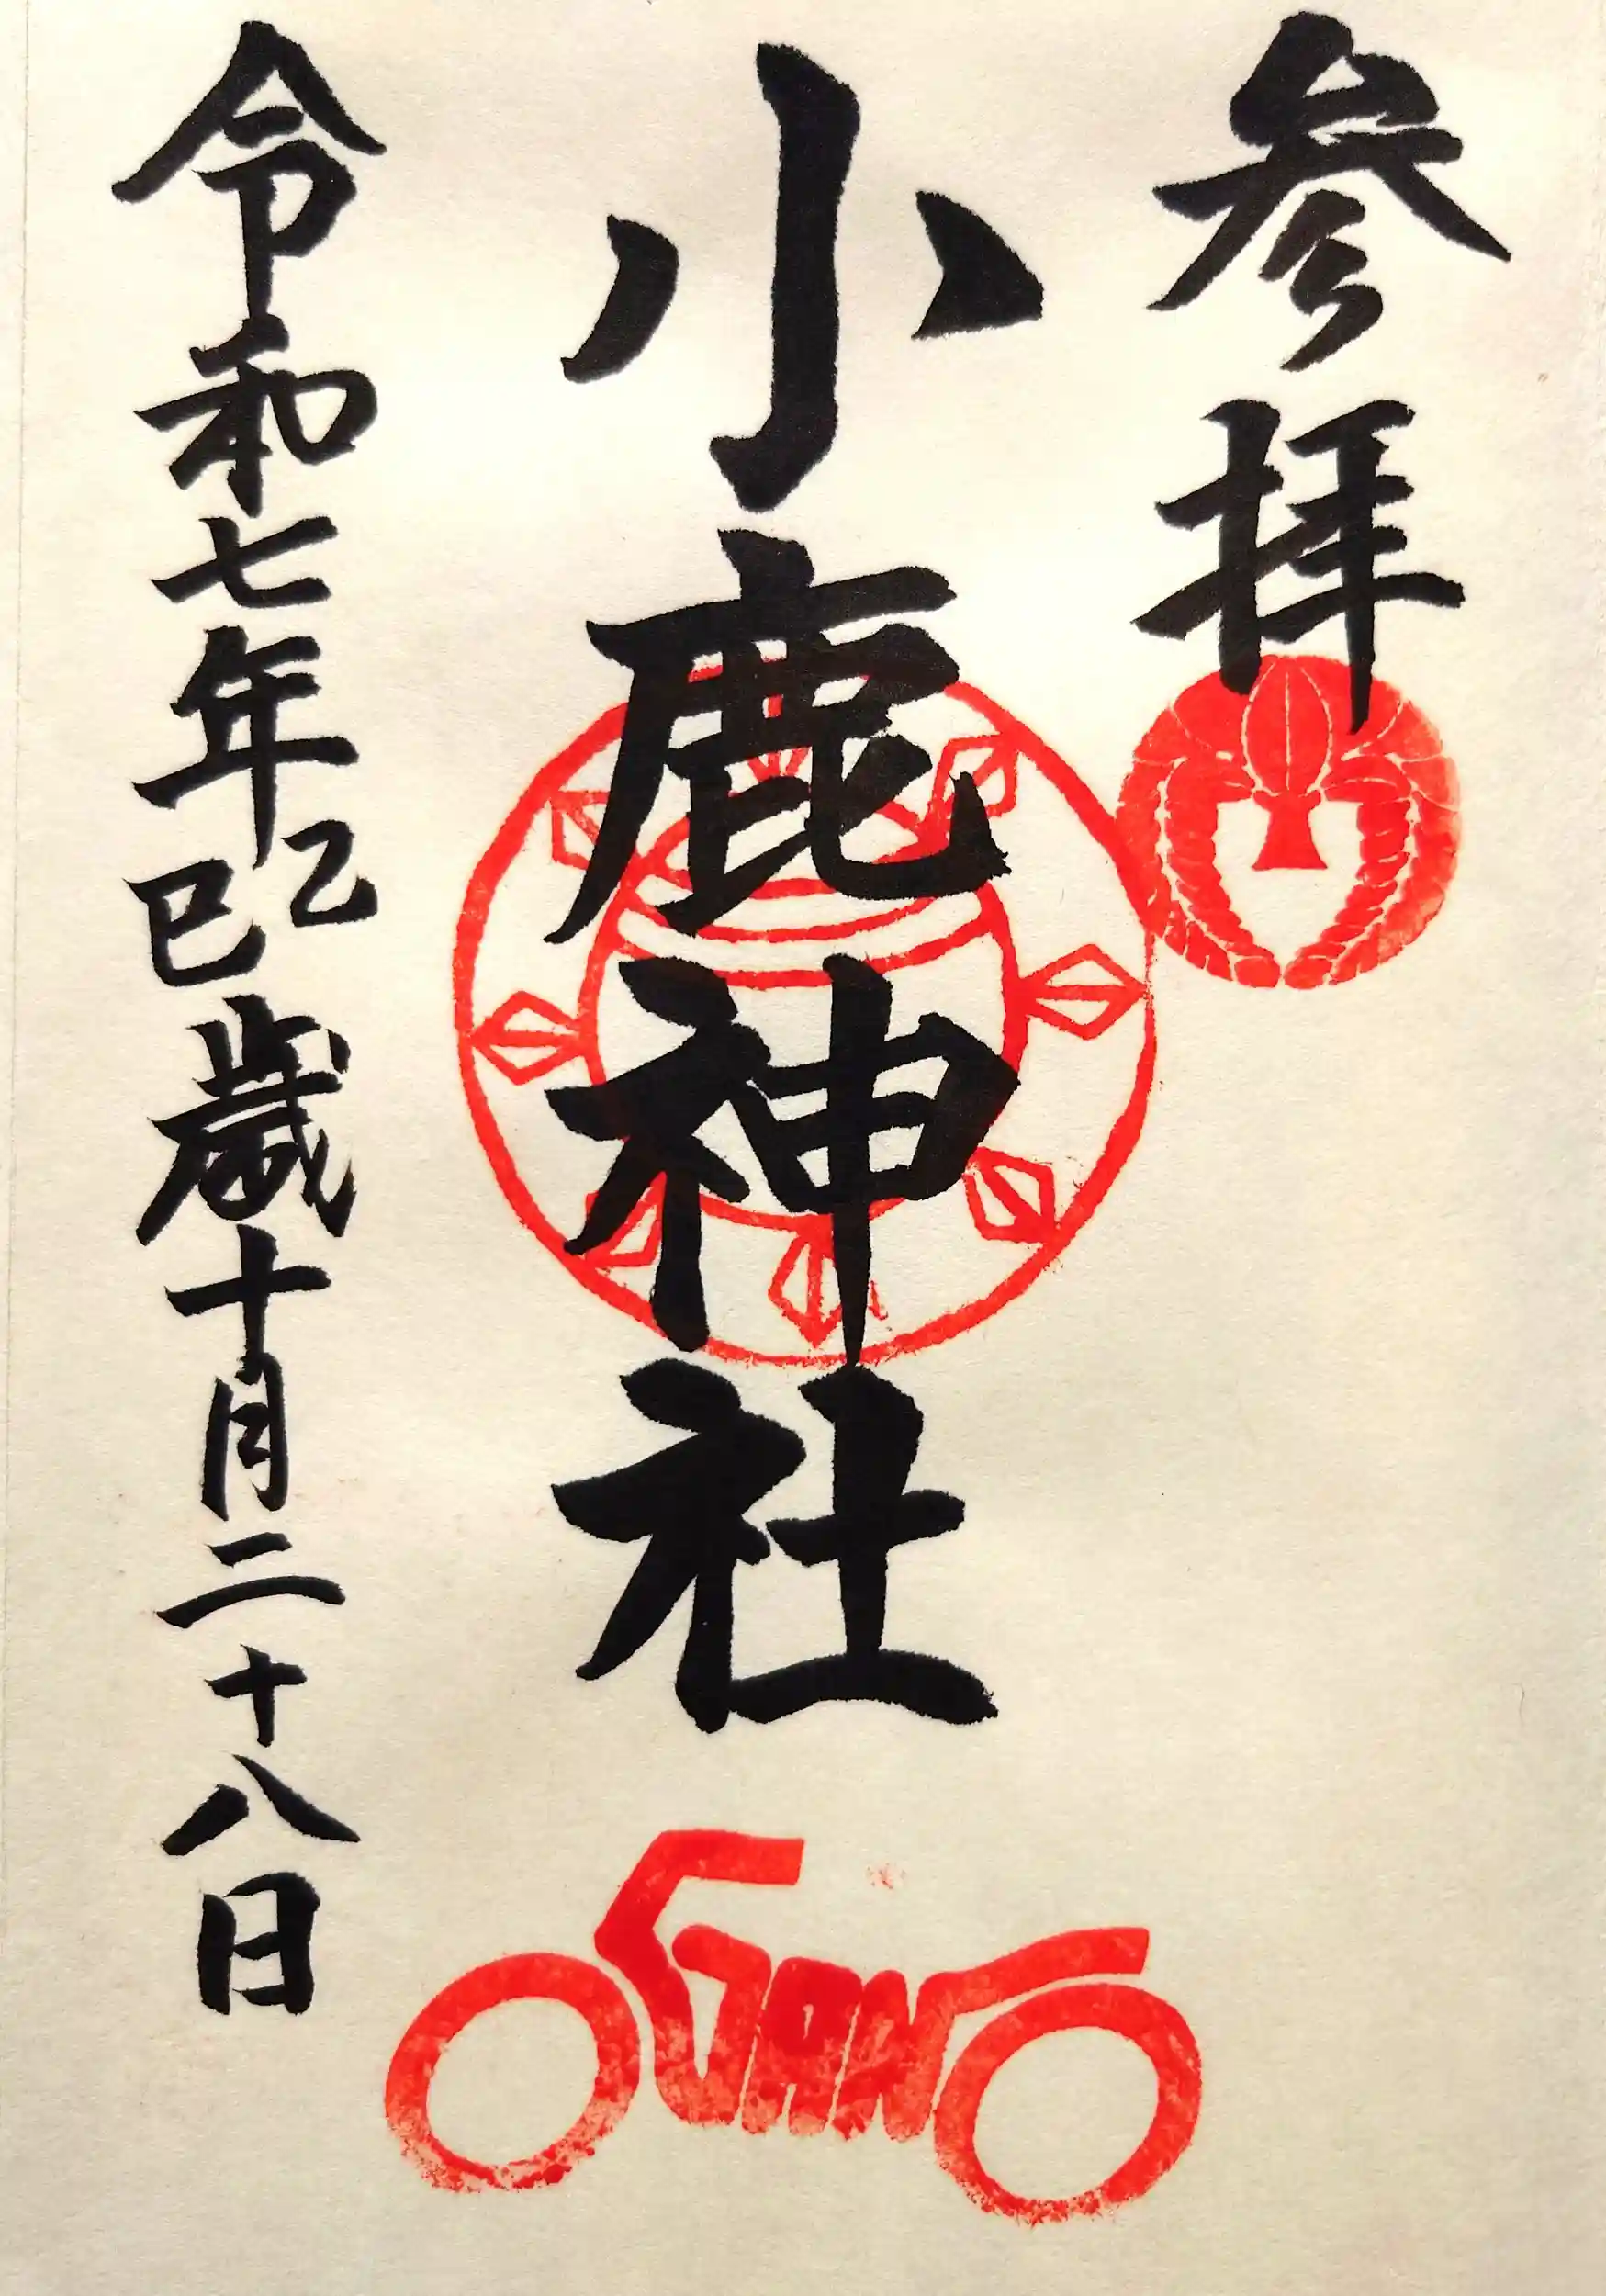 参拝
小鹿神社
令和七年乙巳歳十月二十八日